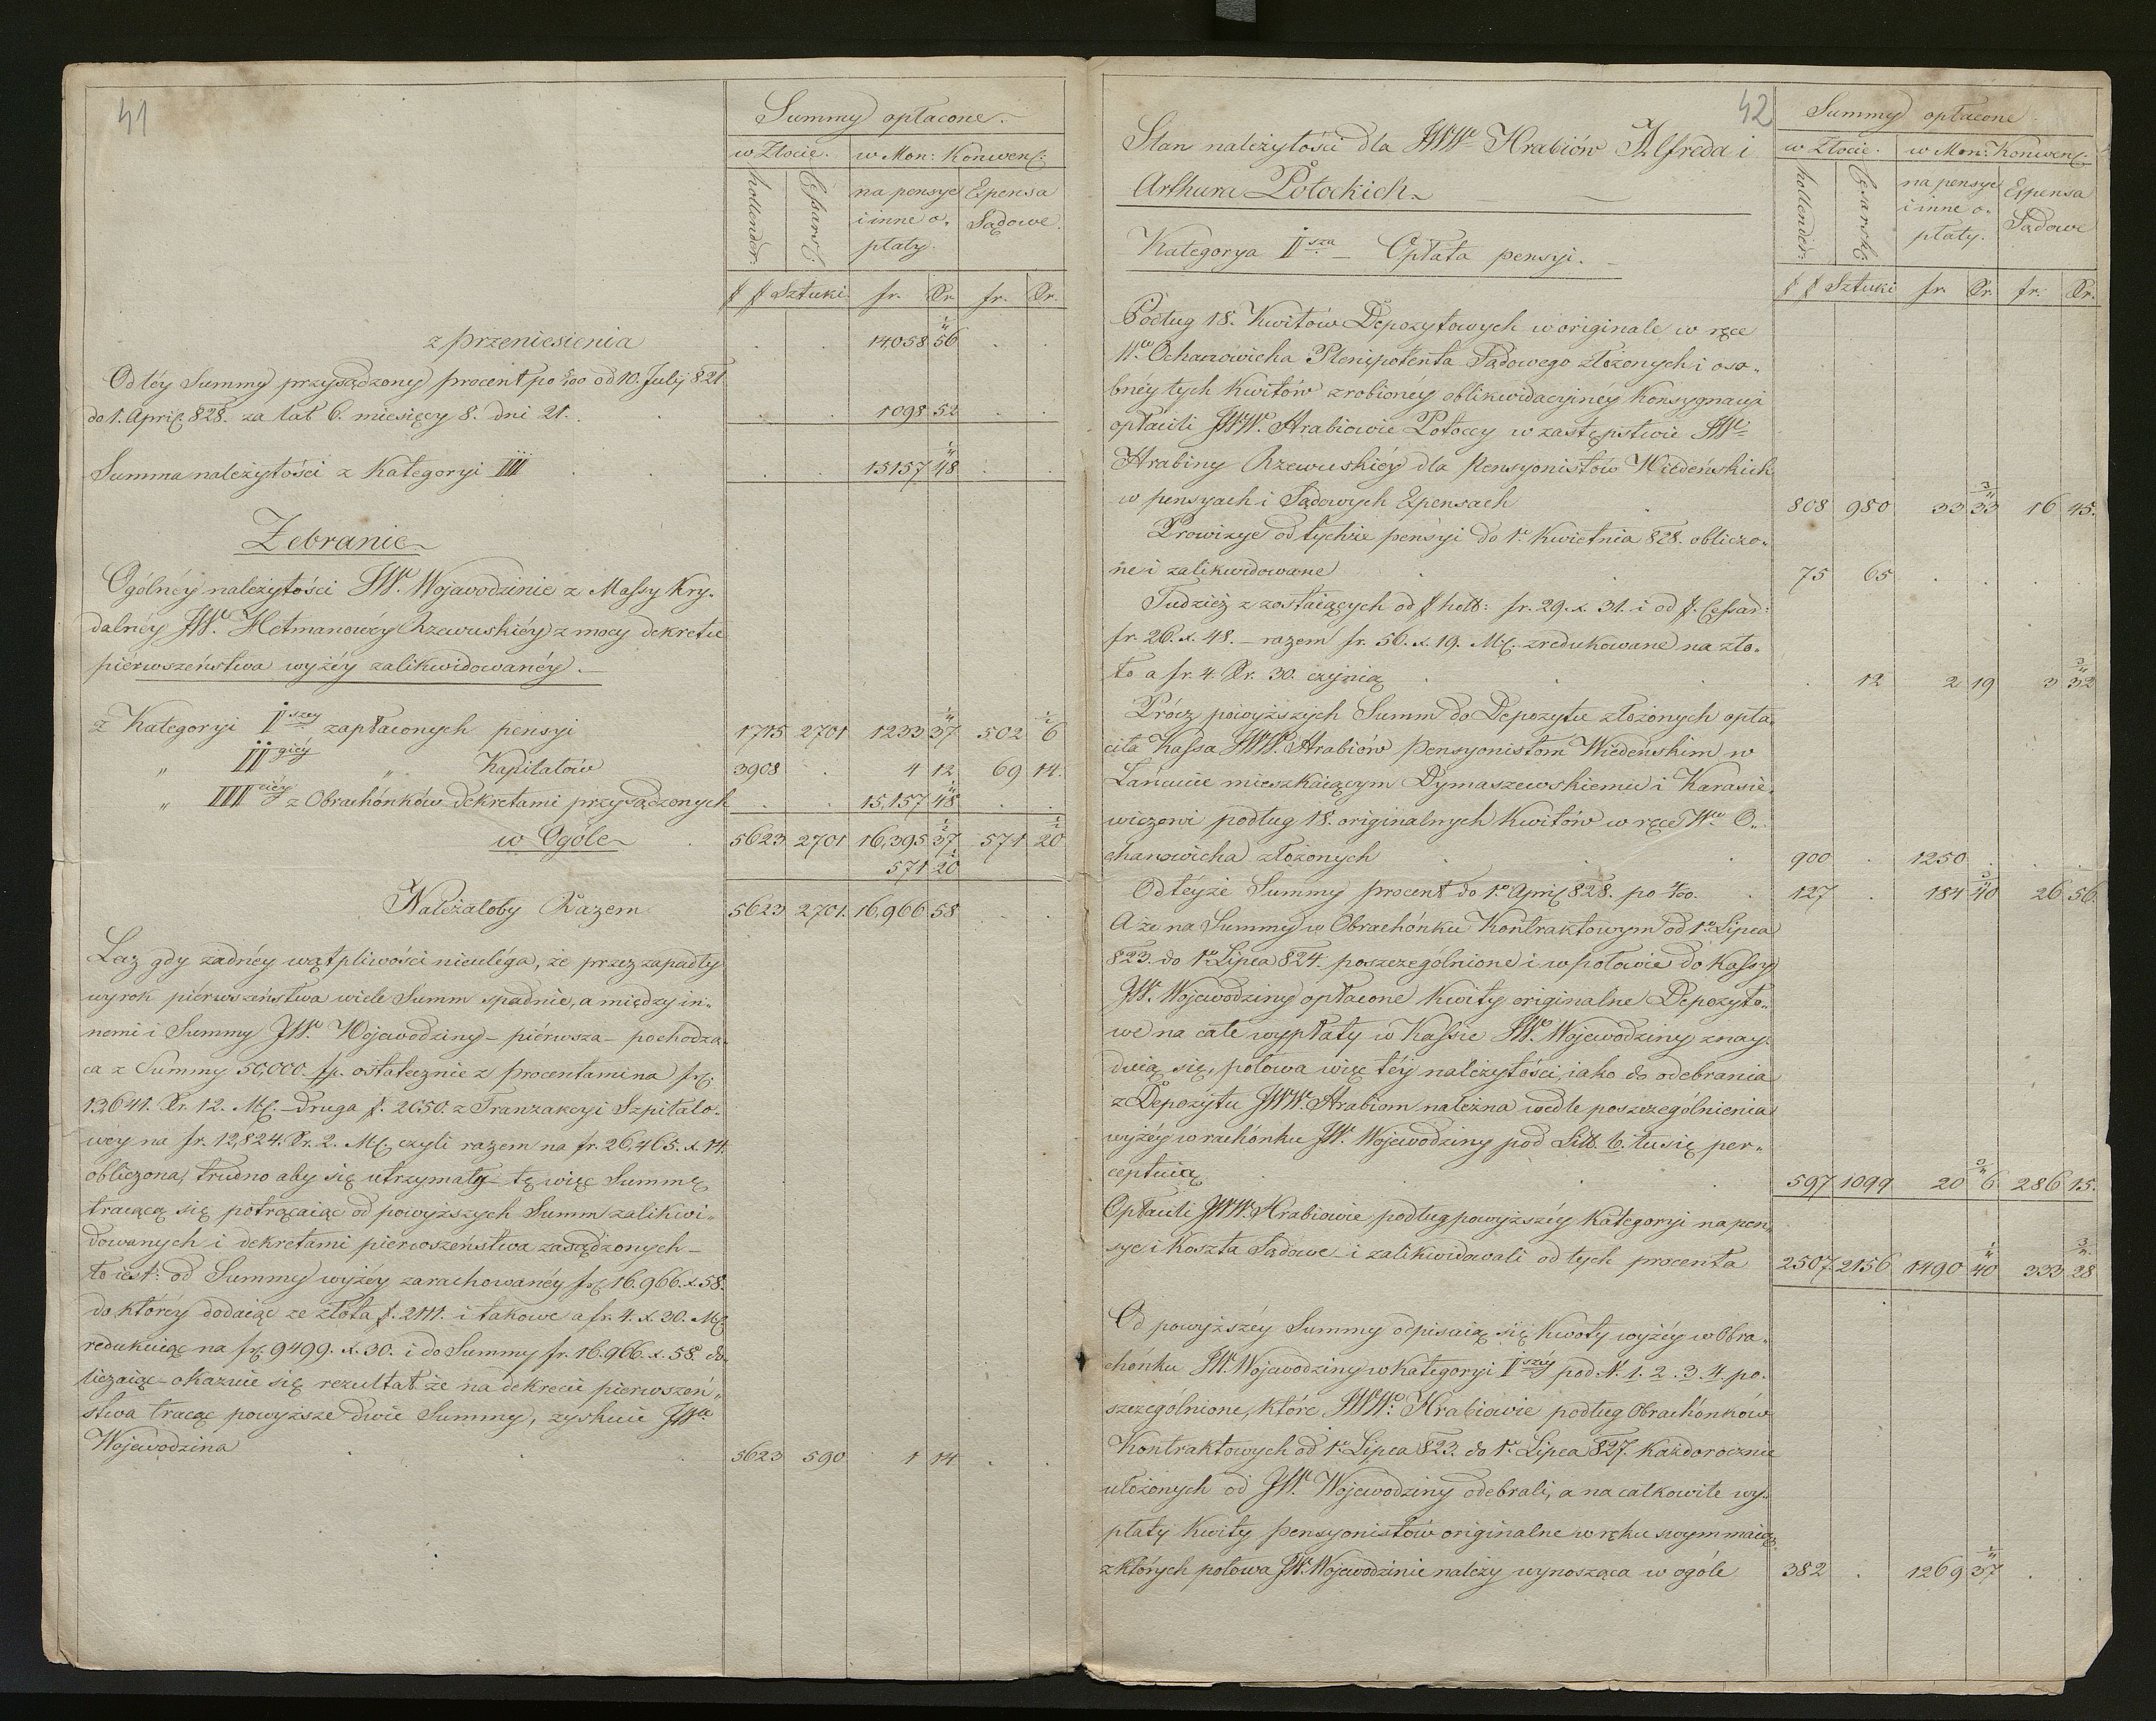 41
Summy opłacone.
w Złocie. w Mon: Konwenc:
hollender: Cessarś: na pensye i inne o„ płaty. Expensa Sądowe.
# # Sztuki fr. Xr. fr. Xr.
z przeniesienia 14058 56 1/4
Od téy Summy przysądzony procent po 5/100 od 10. July 821
do 1. April 828. za lat 6. miesięcy 8. dni 21. 1098 52
Summa należytości z Kategoryi III 15157 48 1/4
Zebranie
Ogólnéy należytości JW. Wojewodzinie z Massy Kry„
dalnéy JW. Hetmanowéy Rzewuskiéy z mocy dekretu
piérwszeństwa wyżéy zalikwidowanéy.
z Kategoryi I szey zapłaconych pensyi 1715 2701 1233 37 1/4 502 6 1/2
„ II giéy „ Kapitałów 3908 . 4 12 69 14.
„ III ciéy z Obrachónków dekretami przysądzonych . . 15,157 48 1/4
w Ogóle 5623 2701 16,395 37 1/2 571 20 1/2
571 20 1/2
Należałoby Razem 5623 2701. 16,966 58
Lecz gdy żadnéy wątpliwości nieuléga, że przez zapadły
wyrok piérwszeństwa wiele Summ spadnie, a między in„
nemi i Summy JW. Wojewodziny – piérwsza – pochodzą„
ca z Summy 50,000. fp. ostatecznie z procentami na fr.
13641. Xr. 12. MC. – druga #. 2650. z Tranzakcyi Szpitalo„
wéy na fr. 12,824. Xr. 2. MC. czyli razem na fr. 26,465. x. 14.
obliczona, trudno aby się utrzymały – tę więc Summę
tracącą się potrącaiąc od powyższych Summ zalikwi„
dowanych i dekretami pierwszeństwa zasądzonych –
to iest: od Summy wyżéy zarachowanéy fr. 16.966. x. 58.
do któréy dodaiąc ze złota #. 2111. i takowe a fr. 4. x. 30. MC.
redukuiąc na fr. 9499. x. 30. i do Summy fr. 16.966. x. 58. do„
liczaiąc – okazuie się rezultat że na dekrecie pierwszeń„
stwa tracąc powyższe dwie Summy, zyskuie JW.
Wojewodzina 5623 590 1 14
42
Summy opłacone
w Złocie. w Mon: Konwenc:
hollender: Cesarsk: na pensye i inne o„ płaty. Expensa Sądowe
# # Sztuki fr. Xr. fr. Xr.
Stan należytości dla JWW. Hrabiów Alfreda i
Arthura Potockich
Kategorya I sza – Opłata pensyi.
Podług 18. Kwitów Depozytowych w originale w ręce
W. Ochanowicha Plenipotenta Sądowego złożonych i oso„
bnéy tych Kwitów zrobionéy oblikwidacyjnéy Konsygnacyi
opłacili JWW. Hrabiowie Potoccy w zastępstwie JW.
Hrabiny Rzewuskiéy dla Pensyonistów Wiedeńskich
w pensyach i Sądowych Expensach 808 980 33 33 3/4 16 45.
Prowizye od tychże pensyi do 1. Kwietnia 828. obliczo„
ne i zalikwidowane 75 65
Tudzież z zostaiących od # holl: fr. 29. x. 31. i od #. Cessar:
fr. 26. x. 48. – razem fr. 56. x. 19. MC. zredukowane na zło„
to a fr. 4. Xr. 30. czynią . 12 2 19 3 32 3/4
Prócz powyższych Summ do Depozytu złożonych opła„
ciła Kassa JWW. Hrabiów Pensyonistom Wiedeńskim w
Łańcucie mieszkaiącym Dymaszewskiemu i Karasie„
wiczowi podług 18. originalnych Kwitów w ręce W. O„
chanowicha złożonych 900 . 1250
Od téyże Summy procent do 1. April 828. po 4/100. 127 . 184 40 3/4 26 56.
A że na Summy w Obrachónku Kontraktowym od 1. Lipca
823. do 1. Lipca 824. poszczególnione i w połowie do Kassy
JW. Wojewodziny opłacone Kwity originalne Depozyto„
we na całe wypłaty w Kassie JW. Wojewodziny znay„
duią się, połowa więc téy należytości, iako do odebrania
z Depozytu JWW. Hrabiom należna wedle poszczególnienia
wyżéy w rachónku JW. Wojewodziny pod Litt. b. tu się per„
ceptuią 597 1099 20 6 3/4 286 15.
Opłacili JWW. Hrabiowie podług powyższéy Kategoryi na pen„
sye i Koszta Sądowe i zalikwidowali od tych procenta 2507 2156 1490 40 1/4 333 28 3/4
Od powyższéy Summy odpisaią się Kwoty wyżéy w Obra„
chónku JW. Wojewodziny w Kategoryi I széy pod N. 1. 2. 3. 4. po„
szczególnione, które JWW. Hrabiowie podług Obrachónków
Kontraktowych od 1. Lipca 823. do 1. Lipca 827. każdorocznie
ułożonych od JW. Wojewodziny odebrali, a na całkowite wy„
płaty Kwity Pensyonistów originalne w ręku swym maią,
z których połowa JW. Wojewodzinie należy wynosząca w ogóle 382 . 1269 37 1/4